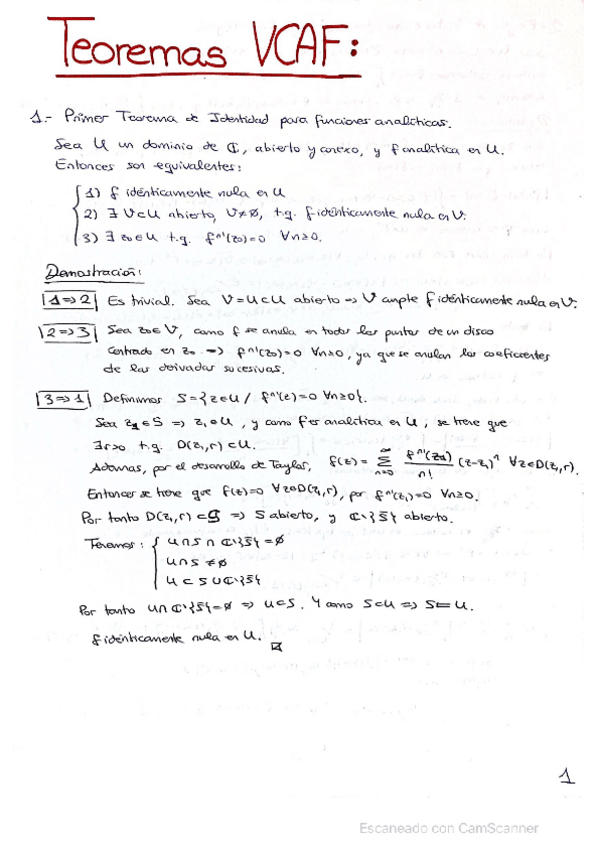 Teoremas VCAF:
1.- Primer Teorema de Identidad para funciones analíticas.
Sea U un dominio de ℂ, abierto y conexo, y f analítica en U.
Entonces son equivalentes:
1) f idénticamente nula en U
2) ∃ V⊂U abierto, V≠∅, t.q. f idénticamente nula en V.
3) ∃ z₀∈U t.q. fⁿ⁾(z₀)=0 ∀n≥0.
Demostración:
1⇒2 Es trivial. Sea V=U⊂U abierto ⇒ V cumple f idénticamente nula en V.
2⇒3 Sea z₀∈V, como f se anula en todos los puntos de un disco
centrado en z₀ ⇒ fⁿ⁾(z₀)=0 ∀n≥0, ya que se anulan los coeficientes
de las derivadas sucesivas.
3⇒1 Definimos S={z∈U / fⁿ⁾(z)=0 ∀n≥0}.
Sea z₁∈S ⇒ z₁∈U, y como f es analítica en U, se tiene que
∃r>0 t.q. D(z₁,r)⊂U.
Además, por el desarrollo de Taylor, f(z)= ∑_{n=0}^{∞} fⁿ⁾(z₁)/n! (z-z₁)ⁿ ∀z∈D(z₁,r).
Entonces se tiene que f(z)=0 ∀z∈D(z₁,r), por fⁿ⁾(z₁)=0 ∀n≥0.
Por tanto D(z₁,r)⊂S ⇒ S abierto, y ℂ\{S} abierto.
Tenemos: U∩S∩ℂ\{S}=∅
U∩S≠∅
U⊂S∪ℂ\{S}
Por tanto U∩ℂ\{S}=∅ ⇒ U⊂S. Y como S⊂U ⇒ S=U.
f idénticamente nula en U.
1
Escaneado con CamScanner